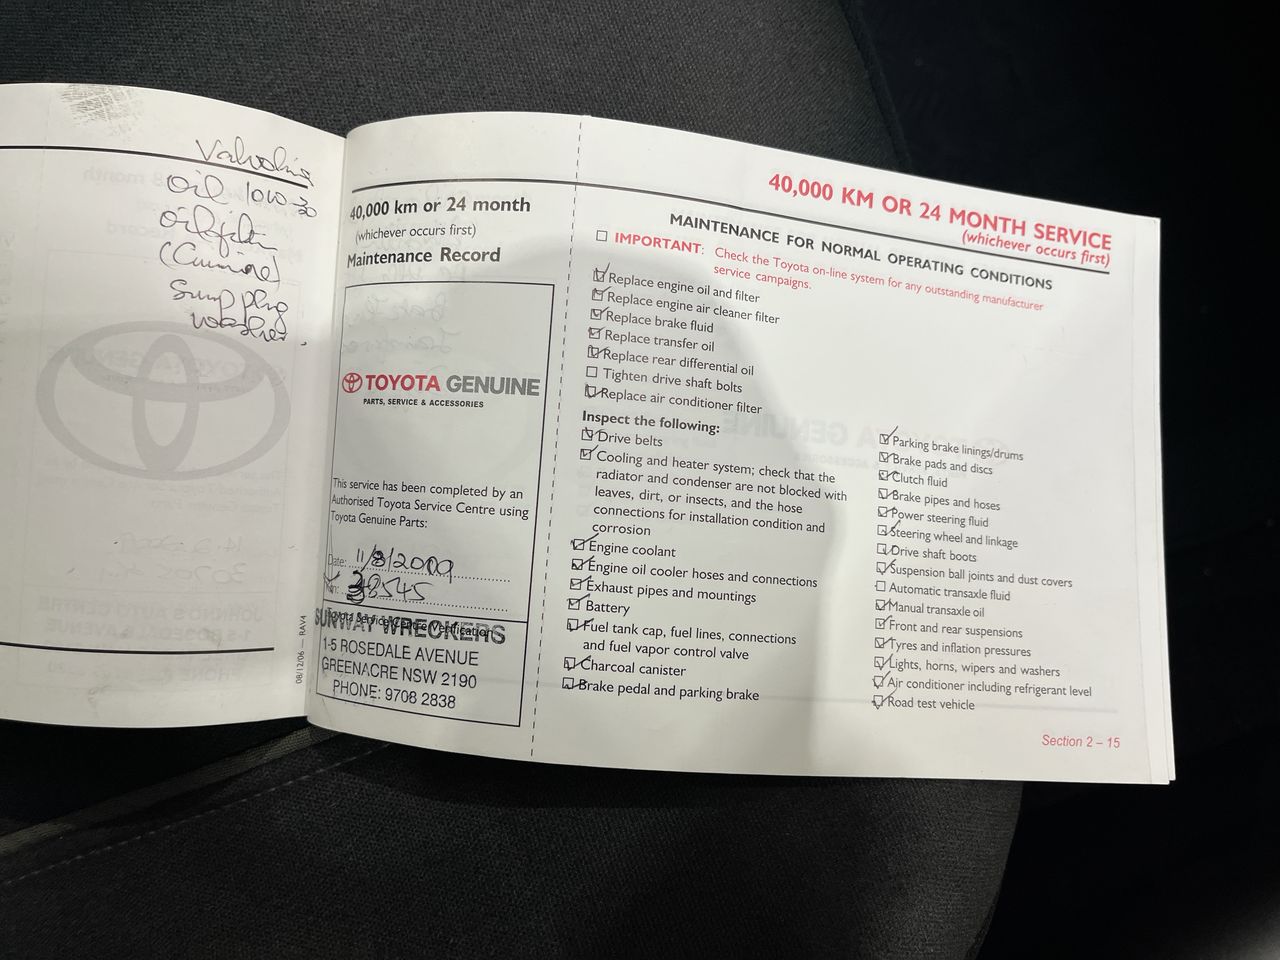 Valvoline
Oil 10W-30
Oil filter
(Genuine)
Sump plug
washer.
08/12/06 — RAV4
40,000 km or 24 month
(whichever occurs first)
Maintenance Record
TOYOTA GENUINE
PARTS, SERVICE & ACCESSORIES
This service has been completed by an
Authorised Toyota Service Centre using
Toyota Genuine Parts:
Date: 11/8/2009
Km: 38545
Toyota Service Centre Verification
SUNWAY WRECKERS
1-5 ROSEDALE AVENUE
GREENACRE NSW 2190
PHONE: 9708 2838
40,000 KM OR 24 MONTH SERVICE
(whichever occurs first)
MAINTENANCE FOR NORMAL OPERATING CONDITIONS
IMPORTANT: Check the Toyota on-line system for any outstanding manufacturer
service campaigns.
Replace engine oil and filter
Replace engine air cleaner filter
Replace brake fluid
Replace transfer oil
Replace rear differential oil
Tighten drive shaft bolts
Replace air conditioner filter
Inspect the following:
Drive belts
Cooling and heater system; check that the
radiator and condenser are not blocked with
leaves, dirt, or insects, and the hose
connections for installation condition and
corrosion
Engine coolant
Engine oil cooler hoses and connections
Exhaust pipes and mountings
Battery
Fuel tank cap, fuel lines, connections
and fuel vapor control valve
Charcoal canister
Brake pedal and parking brake
Parking brake linings/drums
Brake pads and discs
Clutch fluid
Brake pipes and hoses
Power steering fluid
Steering wheel and linkage
Drive shaft boots
Suspension ball joints and dust covers
Automatic transaxle fluid
Manual transaxle oil
Front and rear suspensions
Tyres and inflation pressures
Lights, horns, wipers and washers
Air conditioner including refrigerant level
Road test vehicle
Section 2 – 15